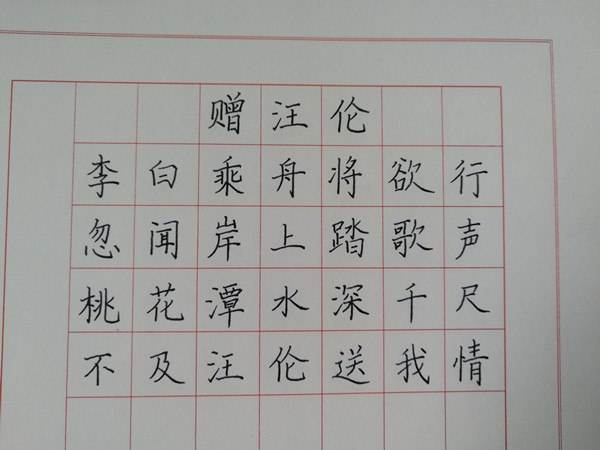 赠汪伦
李白乘舟将欲行
忽闻岸上踏歌声
桃花潭水深千尺
不及汪伦送我情